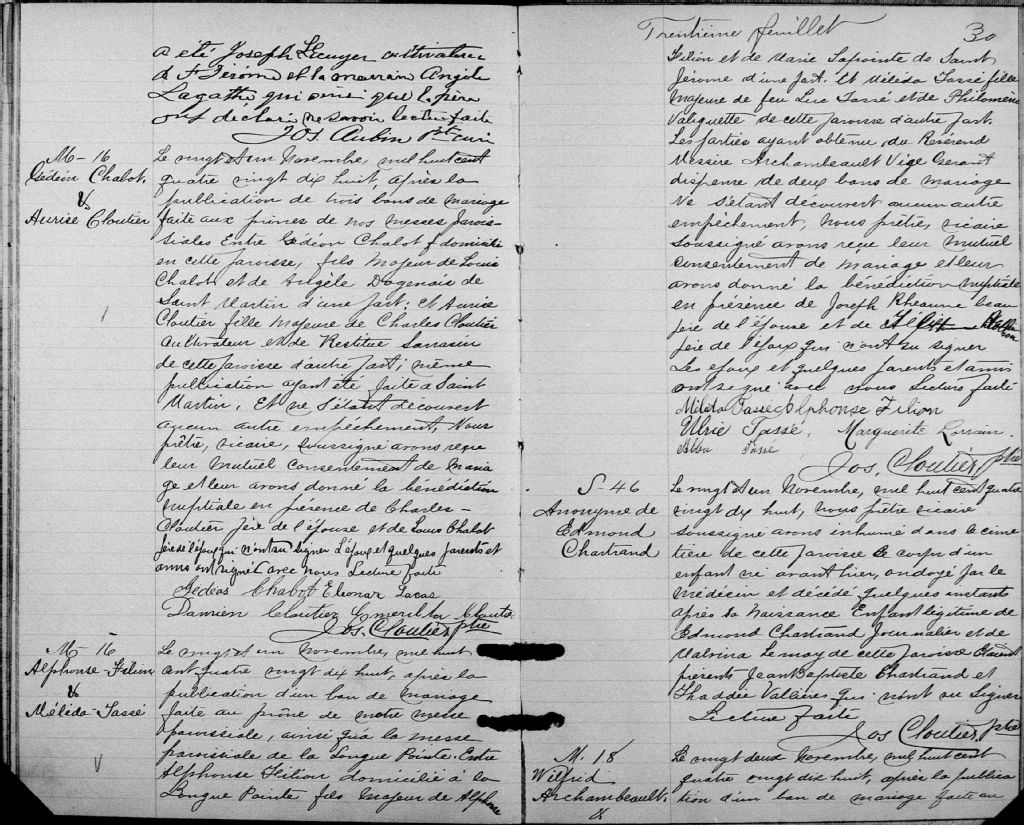 a été Joseph cultivateur
de St Jérome et la marraine Angèle
Lagathe qui ainsi que le père
ont déclaré ne savoir lecture faite
Jos. Aubin Ptre curé
M - 16
Gédéon Chalot.
&
Aurise Cloutier
Le vingt et un Novembre, mil huit cent
quatre vingt dix huit, après la
publication de trois bans de mariage
faite aux prônes de nos messes parois-
siales Entre Gédéon Chalot domicilié
en cette paroisse, fils majeur de Louis
Chalot et de Angèle Dagenais de
Saint Martin d'une part; et Aurise
Cloutier fille majeure de Charles Cloutier
cultivateur et de Restitue Sarrasin
de cette paroisse d'autre part; même
publication ayant été faite à Saint
Martin. Et ne s'étant découvert
aucun autre empéchement, Nous
prêtre, vicaire, soussigné avons reçu
leur mutuel consentement de maria
ge et leur avons donné la bénédiction
nuptiale en présence de Charles-
Cloutier père de l'épouse et de Louis Chalot
père de l'époux qui n'ont su signer L'époux et quelques parents et
amis ont signé avec nous Lecture faite
Gédéas Chabot Eleonar Lacas
Damien Cloutier Cloutier
Jos. Cloutier, ptre
M - 16
Alphonse Filion
&
Mélida Tassé
Le vingt et un Novembre, mil huit
cent quatre vingt dix huit, après la
publication d'un ban de mariage
faite au prône de notre messe
paroissiale, ainsi qu'à la messe
paroissiale de la Longue Pointe. Entre
Alphonse Filion domicilié à la
Longue Pointe fils majeur de Alphonse
Trentième feuillet 30
Filion et de Marie Lapointe de Saint
Jérome d'une part. Et Mélida Tassé fille
majeure de feu Luc Tassé et de Philomène
Valiquette de cette paroisse d'autre part.
Les parties ayant obtenu du Révérend
Messire Archambeault Vige Gérant
dispense de deux bans de mariage
Ne s'étant découvert aucun autre
empéchement, Nous prêtre, vicaire
soussigné avons reçu leur mutuel
consentement de mariage et leur
avons donné la bénédiction nuptiale
en présence de Joseph Rheaume beau
père de l'épouse et de
père de l'époux qui n'ont su signer
Les époux et quelques parents et amis
ont signé avec nous Lecture faite
Mélida Tassé Alphonse Filion
Ulric Tassé. Marguerite Lorrain.
Alba Tassé
Jos. Cloutier, ptre
S - 46
Anonyme de
Edmond
Chartrand
Le vingt et un Novembre, mil huit cent quatre
vingt dix huit, nous prêtre vicaire
soussigné avons inhumé dans le cime
tière de cette paroisse le corps d'un
enfant né avant hier, ondoyé par le
Médecin et décédé quelques instants
après sa naissance Enfant légitime de
Edmond Chartrand Journalier et de
Malvina Lemay de cette paroisse Etaient
présents Jean Baptiste Chartrand et
Thaddée Vallières qui n'ont su signer
Lecture faite
Jos Cloutier, ptre
M. 18
Wilfrid
Archambeault.
&
Le vingt deux Novembre, mil huit cent
quatre vingt dix huit, après la publica
tion d'un ban de mariage faite au